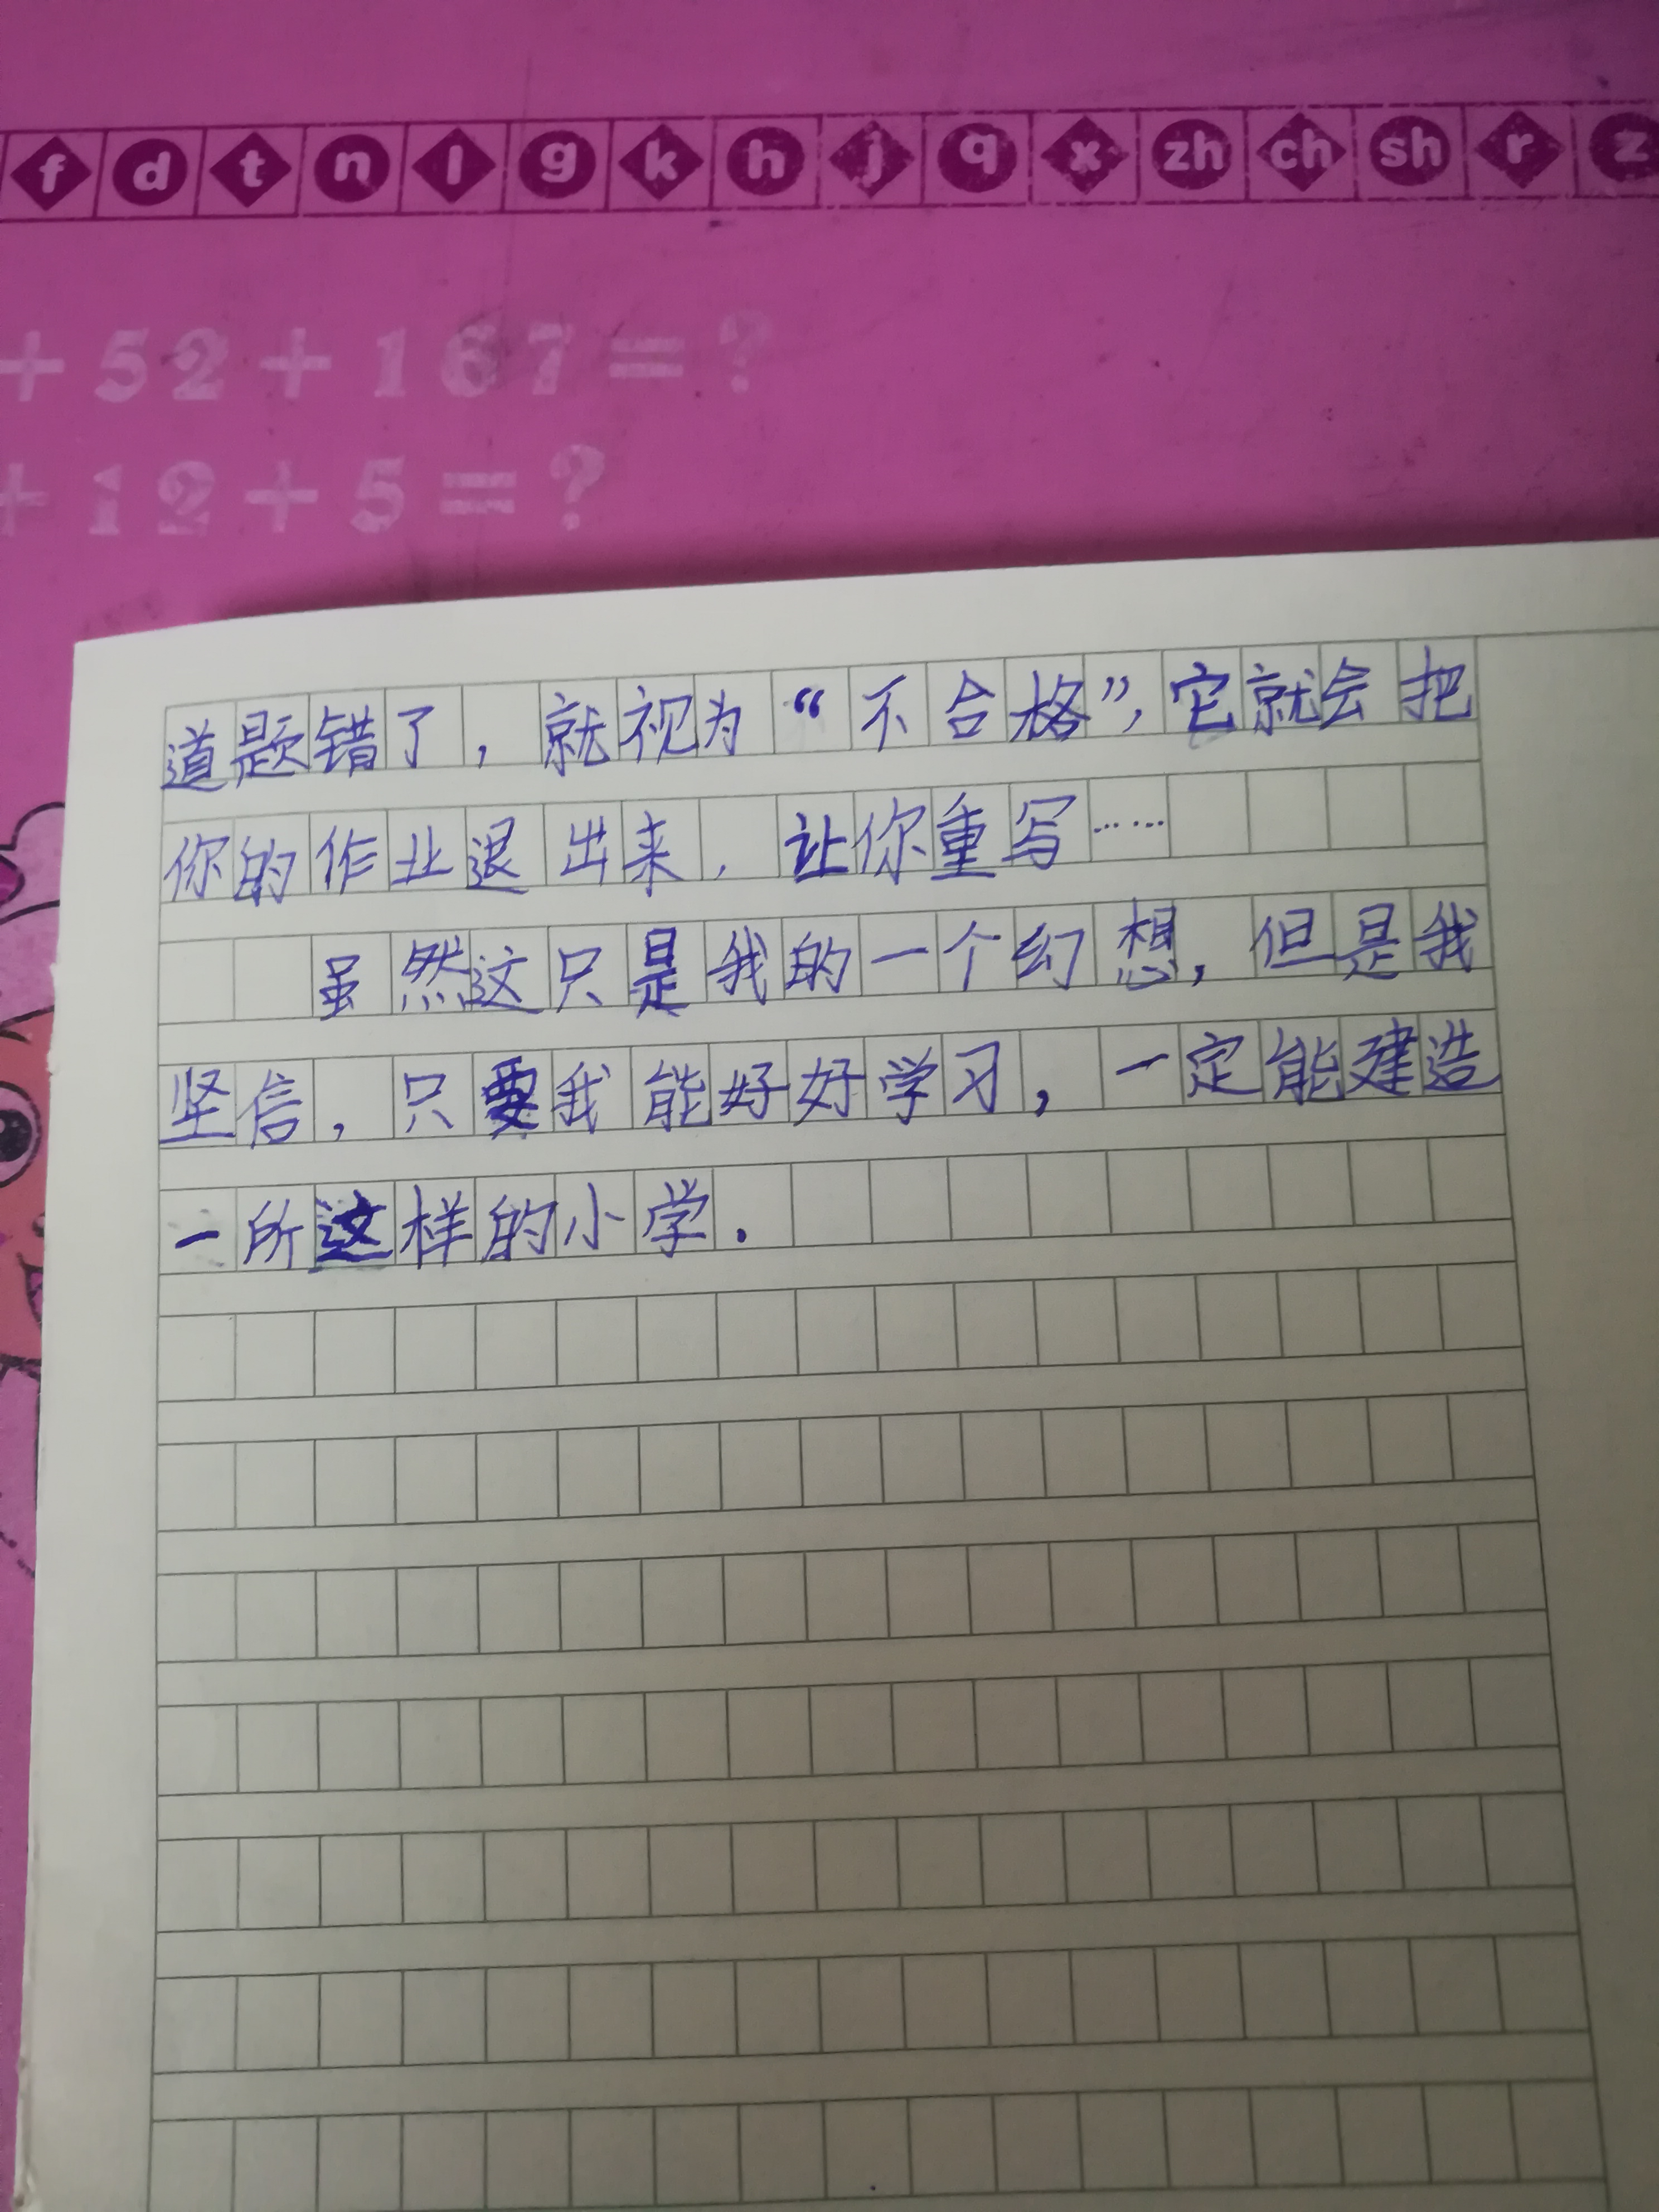 f d t n l g k h j q x zh ch sh r z
+52+167=?
+12+5=?
道题错了，就视为“不合格”，它就会把
你的作业退出来，让你重写……
虽然这只是我的一个幻想，但是我
坚信，只要我能好好学习，一定能建造
一所这样的小学.